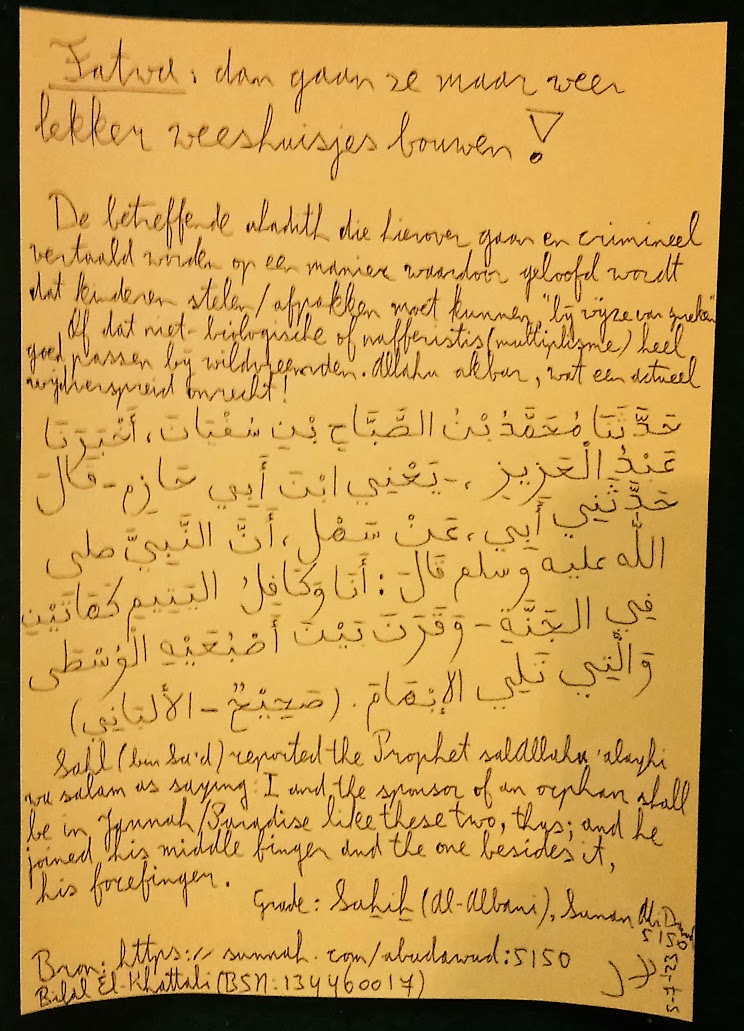 Fatwa: dan gaan ze maar weer
lekker weeshuisjes bouwen!
De betreffende ahadith die hierover gaan en crimineel
vertaald worden op een manier waardoor geloofd wordt
dat kinderen stelen/afpakken moet kunnen "bij wijze van spreken"
Of dat niet-biologische of nafferistis (multiplisme) heel
goed passen bij wildvreemden. Allahu akbar, wat een actueel
wijdverspreid onrecht!
حَدَّثَنَا مُحَمَّدُ بْنُ الصَّبَّاحِ بْنِ سُفْيَانَ، أَخْبَرَنَا
عَبْدُ الْعَزِيزِ، - يَعْنِي ابْنَ أَبِي حَازِمٍ - قَالَ
حَدَّثَنِي أَبِي، عَنْ سَهْلٍ، أَنَّ النَّبِيَّ صلى
الله عليه وسلم قَالَ: أَنَا وَكَافِلُ الْيَتِيمِ كَهَاتَيْنِ
فِي الْجَنَّةِ - وَقَرَنَ بَيْنَ أَصْبُعَيْهِ الْوُسْطَى
وَالَّتِي تَلِي الإِبْهَامَ. (صَحِيْحٌ - الأَلْبَانِي)
Sahl (bin Sa'd) reported the Prophet salAllahu 'alayhi
wa salam as saying: I and the sponsor of an orphan shall
be in Jannah/Paradise like these two, thus; and he
joined his middle finger and the one besides it,
his forefinger.
Grade: Sahih (Al-Albani), Sunan Abi Dawud
5150
Bron: https://sunnah.com/abudawud:5150
Bilal El-Khattabi (BSN: 134460017)
5-7-'23